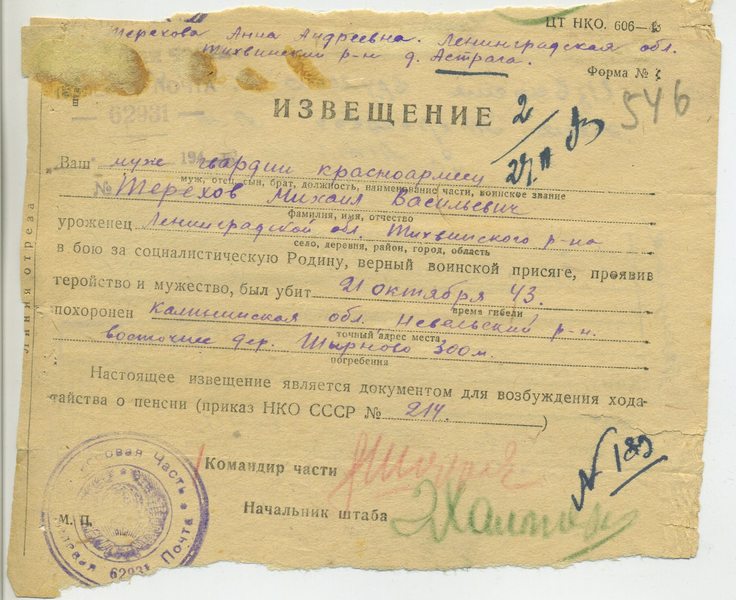 ЦТ НКО. 606—
Терехова Анна Андреевна. Ленинградская обл.
Тихвинский р-н д. Астрага.
Форма №
ПОЧТА
— 62931 —
ИЗВЕЩЕНИЕ
2
546
194
Ваш муж гвардии красноармеец
муж, отец, сын, брат, должность, наименование части, воинское звание
№ Терехов Михаил Васильевич
фамилия, имя, отчество
уроженец Ленинградской обл. Тихвинского р-на
село, деревня, район, город, область
в бою за социалистическую Родину, верный воинской присяге, проявив
геройство и мужество, был убит 21 октября 43.
время гибели
похоронен Калининская обл. Невельский р-н.
точный адрес места
восточнее дер. Шырново 300 м.
погребения
Настоящее извещение является документом для возбуждения хода-
тайства о пенсии (приказ НКО СССР № 214. )
Линия отреза
Командир части
N 189
Начальник штаба
М. П.
Часть
Полевая Почта
62931